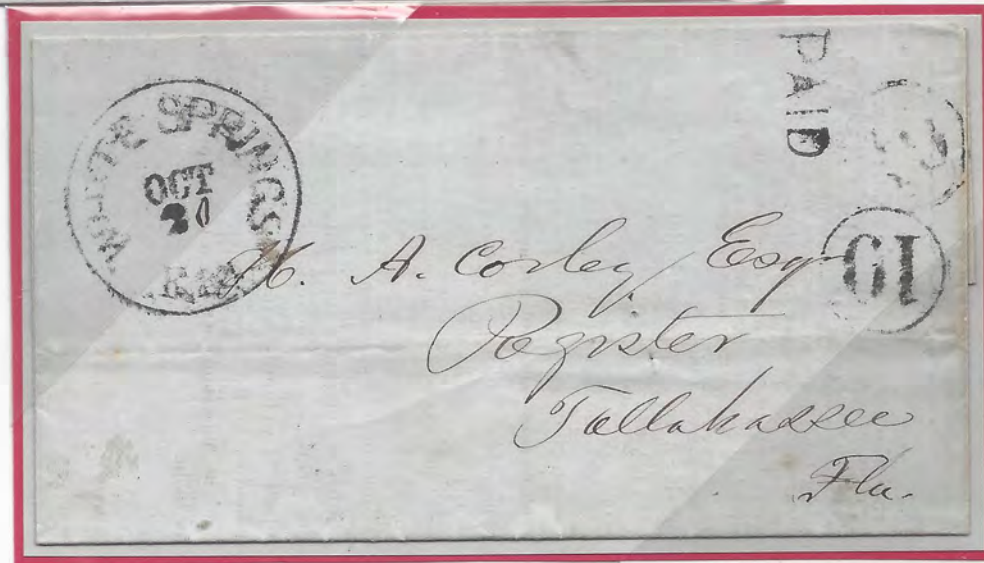 WHITE SPRINGS
OCT
Fla.
PAID
10
H. A. Corley Esqr
Register
Tallahassee
Fla.